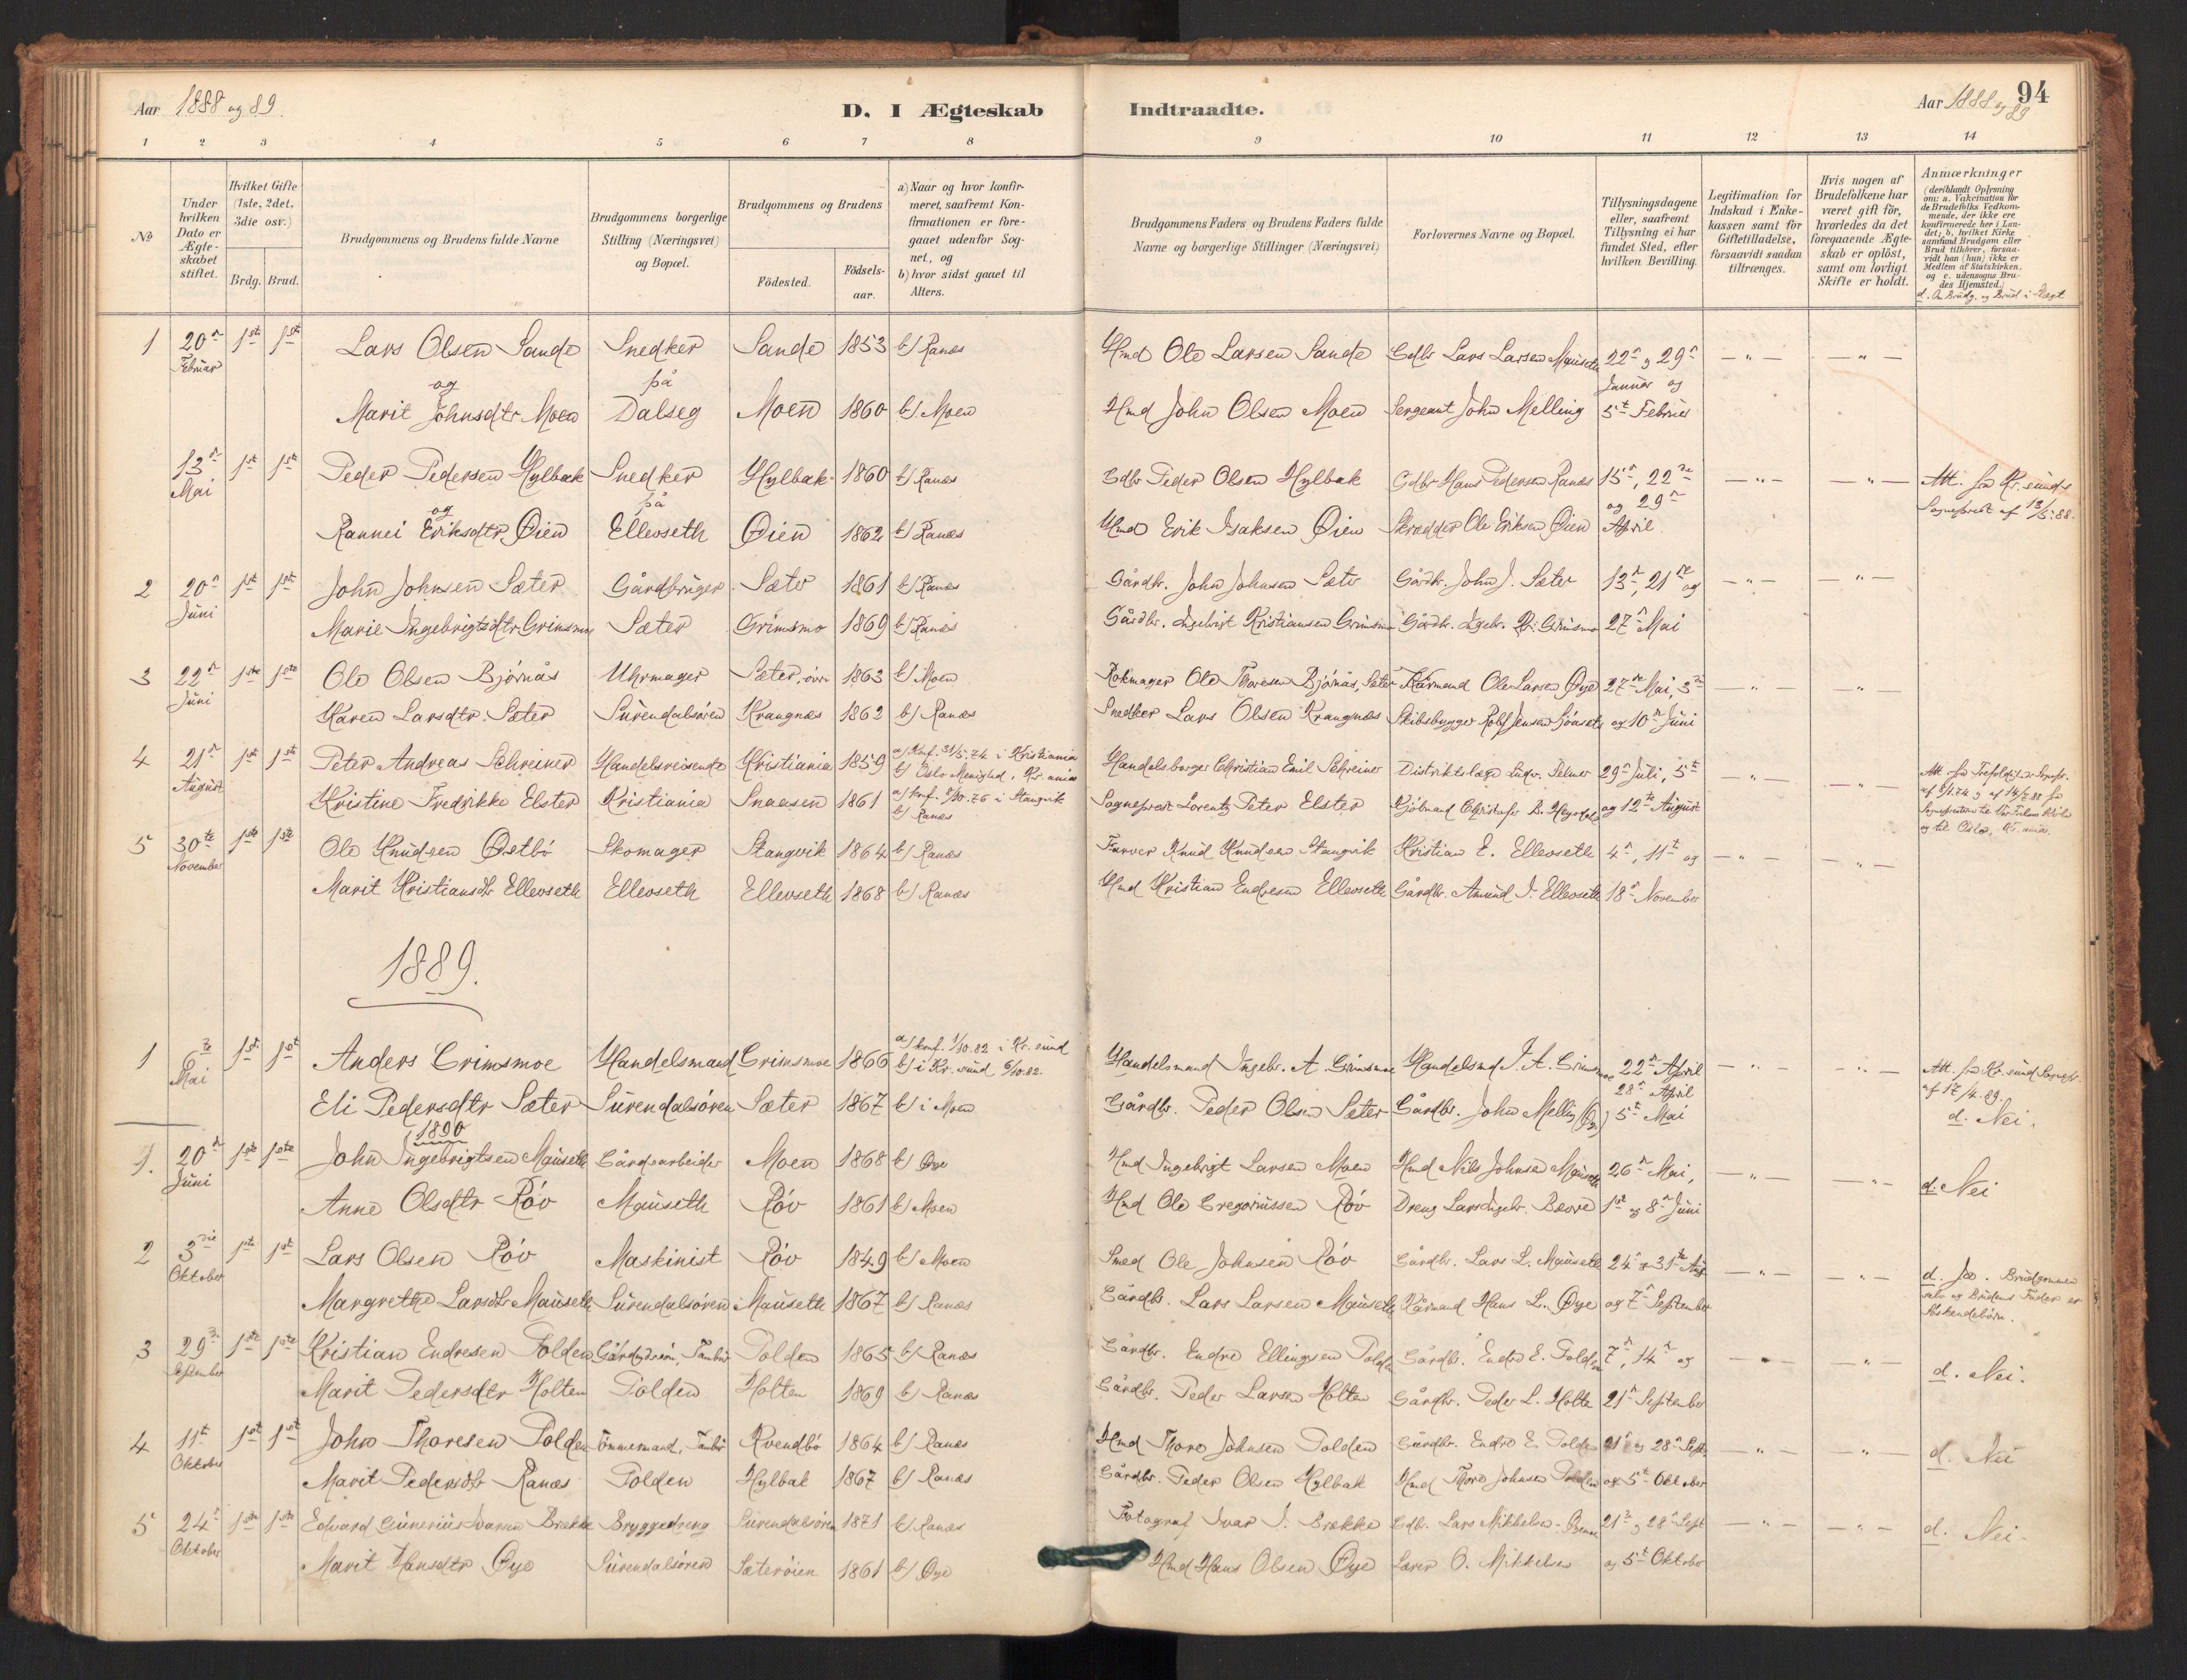 Aar 1888 og 89.
D. I Ægteskab
Indtraadte.
Aar 1888 og 89
94
1 2 3 4 5 6 7 8
9 10 11 12 13 14
No
Under hvilken Dato er Ægteskabet stiftet.
Hvilket Gifte (1ste, 2det, 3die osv.)
Brdg. Brud.
Brudgommens og Brudens fulde Navne
Brudgommens borgerlige Stilling (Næringsvei) og Bopæl.
Brudgommens og Brudens
Födested.
Födselsaar.
a) Naar og hvor konfirmeret, saafremt Konfirmationen er foregaaet udenfor Sognet, og
b) hvor sidst gaaet til Alters.
Brudgommens Faders og Brudens Faders fulde Navne og borgerlige Stillinger (Næringsvei)
Forlovernes Navne og Bopæl.
Tillysningsdagene eller, saafremt Tillysning ei har fundet Sted, efter hvilken Bevilling.
Legitimation for Indskud i Enkekassen samt for Giftetilladelse, forsaavidt saadan tiltrænges.
Hvis nogen af Brudefolkene har været gift för, hvorledes da det foregaaende Ægteskab er oplöst, samt om lovligt Skifte er holdt.
Anmærkninger
(deriblandt Oplysning om: a. Vakcination for de Brudefolks Vedkommende, der ikke ere konfirmerede her i Landet; b. hvilket Kirkesamfund Brudgom eller Brud tilhörer, forsaavidt han (hun) ikke er Medlem af Statskirken, og c. udensogns Brudes Hjemsted.)
d. Om Brudg. og Brud i Slægt
1 20de 1ste 1ste Lars Olsen Sande Snedker Sande 1853 b) Ranæs Hmd Ole Larsen Sande Gdbr Lars Larsen Mauseth 22de og 29de
Februar og på Januar og
Marit Johnsdtr Moen Dalseg Moen 1860 b) Moen Hmd John Olsen Moen Sergeant John Melling 5te Februar
13de 1ste 1ste Peder Pedersen Hylbak Snedker Hylbak 1860 b) Ranæs Gdbr Peder Olsen Hylbak Gdbr Hans Pedersen Ranæs 15de, 22de Att. fra Kr.sunds
Mai og på og 29de Sogneprest af 13/5.88.
Rannei Eriksdtr Øien Ellevseth Øien 1862 b) Ranæs Hmd Erik Isaksen Øien Skrædder Ole Eriksen Øien April
2 20de 1ste 1ste John Johnsen Sæter Gårdbruger Sæter 1861 b) Ranæs Gårdbr. John Johnsen Sæter Gårdbr. John J. Sæter 13de, 21de og
Juni Marie Ingebrigtsdtr Grimsmo Sæter Grimsmo 1869 b) Ranæs Gårdbr. Ingebrigt Kristiansen Grimsmo Gårdbr. Ingebr. Kr. Grimsmo 27de Mai
3 22de 1ste 1ste Ole Olsen Bjørnås Uhrmager Sæter, övre 1863 b) Moen Rokmager Ole Thoresen Bjørnås, Sæter Kårmand Ole Larsen Øye 27de Mai, 3de
Juni Karen Larsdtr. Sæter Surendalsøren Krangnæs 1862 b) Ranæs Snedker Lars Olsen Krangnæs Skibsbygger Jensen og 10de Juni
4 21de 1ste 1ste Peter Andreas Schreiner Handelsreisende Kristiania 1859 a) Konf. 31/5.74 i Kristiania
b) Oslo Menighed, Kr.ania Handelsborger Christian Emil Schreiner Distriktslæge Ludv. 29de Juli, 5te
August Kristine Fredrikke Elster Kristiania Snaasen 1861 a) konf. 8/10.76 i Stangvik
b) Ranæs Sogneprest Lorentz Peter Elster Kjöbmand Christofer B. og 12te August
5 30te 1ste 1ste Ole Knudsen Østbö Skomager Stangvik 1864 b) Ranæs Farver Knud Knudsen Stangvik Kristian E. Ellevseth 4de, 11te og
November Marit Kristiansdtr Ellevseth Ellevseth Ellevseth 1868 b) Ranæs Hmd Kristian Endresen Ellevseth Gårdbr. Amund J. Ellevseth 18de November
1889.
1 6te 1ste 1ste Anders Grimsmoe Handelsmand Grimsmoe 1866 a) konf. 1/10.82 i Kr.sund
b) i Kr.sund 6/10.82. Handelsmand Ingebr. A. Grimsmoe Handelsmd I. A. Grimsmoe 22de April Att. fra Kr.sund Sognepr.
Mai 28de April af 17/4.89.
Eli Pedersdtr Sæter Surendalsøren Sæter 1867 b) i Moen Gårdbr. Peder Olsen Sæter Gårdbr. John Melling 5te Mai d. Nei.
1890
1. 20de 1ste 1ste John Ingebrigtsen Mauseth Gårdsarbeider Moen 1868 b) Øye Hmd Ingebrigt Larsen Moen Hmd Nils Johnsen Mauseth 26de Mai, d. Nei
Juni Anne Olsdtr Röv Mauseth Röv 1861 b) Moen Hmd Ole Gregoriussen Röv Dreng Lars Ingebr. Bævre 1ste og 8de Juni
2 3die 1ste 1ste Lars Olsen Röv Maskinist Röv 1849 b) Moen Smed Ole Johnsen Röv Gårdbr. Lars L. Mauseth 24de og 31te Aug. d. Ja. Brudgommen
Oktober Margrethe Larsdtr Mauseth Surendalsøren Mauseth 1867 b) Ranæs Gårdbr. Lars Larsen Mauseth Kårmand Hans L. Øye og 7de September selv og Brudens Fader er
Söskendebörn.
3 29de 1ste 1ste Kristian Endresen Tolden Tolden 1865 b) Ranæs Gårdbr. Endre Ellingsen Tolden Gårdbr. Endre E. Tolden 7de, 14de og d. Nei.
September Marit Pedersdtr Holten Tolden Holten 1869 b) Ranæs Gårdbr. Peder Larsen Holten Gårdbr. Peder L. Holten 21de September
4 11te 1ste 1ste John Thoresen Tolden Tömmermand, Kvendbö 1864 b) Ranæs Hmd Thore Johnsen Tolden Gårdbr. Endre E. Tolden 21de og 28de Sept. d. Nei
Oktober Marit Pedersdtr Ranæs Tolden Hylbak 1867 b) Ranæs Gårdbr. Peder Olsen Hylbak Hmd Thore Johnsen Tolden og 5te Oktober
5 24de 1ste 1ste Edvard Gunerius Ivarsen Brække Bryggedreng Surendalsøren 1871 b) Ranæs Fotograf Ivar J. Brække Gdb. Lars Mikkelsen 21de og 28de Sept d. Nei.
Oktober Marit Hansdtr Øye Surendalsøren Sæterøien 1861 b) Øye Hmd Hans Olsen Øye Lærer O. Mikkelsen og 5te Oktober